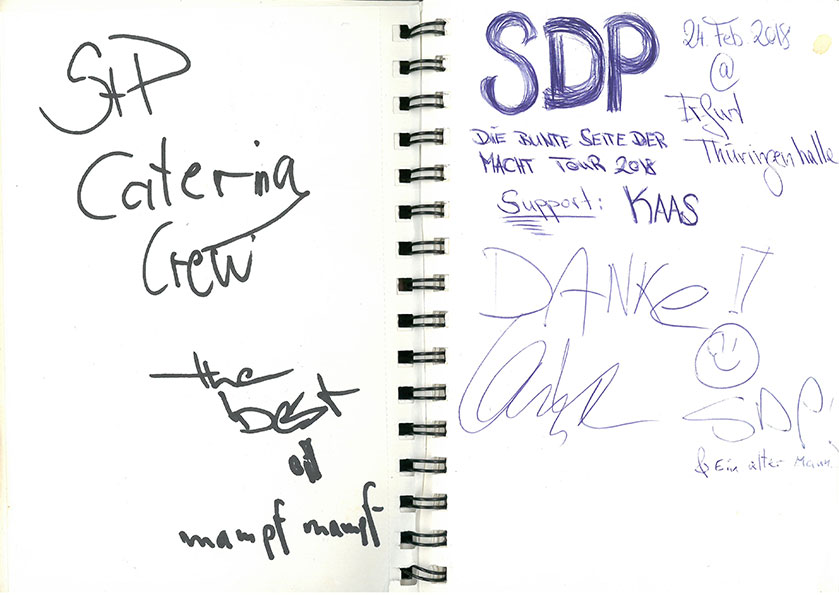 S+P
Caterina
Crew
the
best
mampf mampf
SDP
DIE BUNTE SEITE DER
MACHT TOUR 2018
Support: KAAS
24. Feb 2018
@
Erfurt
Thüringenhalle
DANKE!!
SDP!
& Ein alter Mann